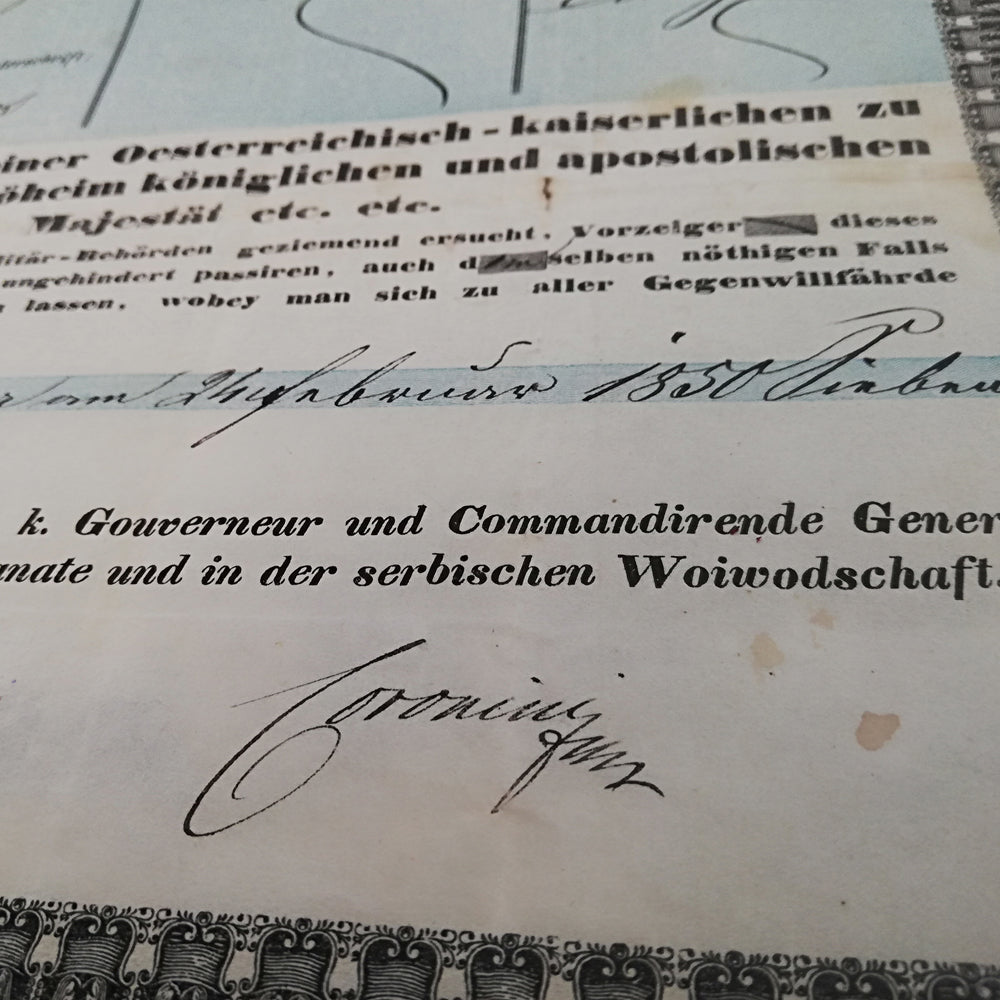 einer Oesterreichisch-kaiserlichen zu
öheim königlichen und apostolischen
Majestät etc. etc.
litär-Behörden geziemend ersucht, Vorzeiger dieses
ungehindert passiren, auch d selben nöthigen Falls
lassen, wobey man sich zu aller Gegenwillfährde
am 24 februar 1850 Sieben
k. Gouverneur und Commandirende Gener
anate und in der serbischen Woiwodschaft.
Coronini